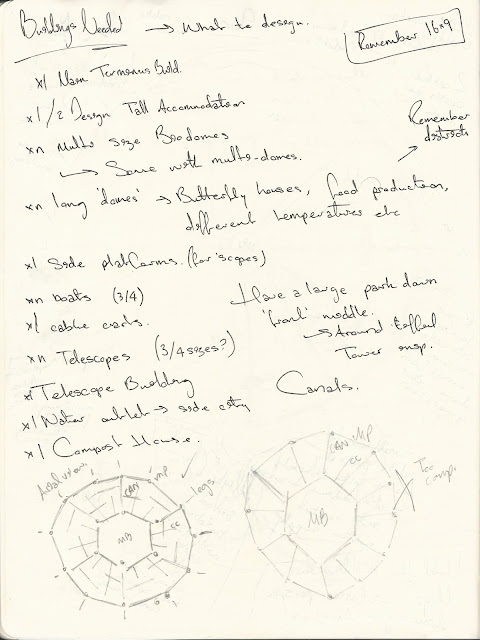 Buildings Needed → What to design.
Remember 16x9
x1 Main Terminus Build.
x1/2 Design Tall Accommodation
xn Multi size Biodomes
↳ Some with multi-domes.
Remember districts
xn long 'domes' → Butterfly houses, food production,
different temperatures etc
x1 Side platforms. (for 'scopes)
xn boats (3/4)
x1 cable carts.
xn Telescopes (3/4 sizes?)
Have a large park down
'front' middle.
→ Around Eiffel
Tower insp.
x1 Telescope Building
x1 Water outlet → side city
x1 Compost House.
Canals.
Aerial view.
CAN
MP
legs
CC
MB
CAN
MP
CC
MB
Too